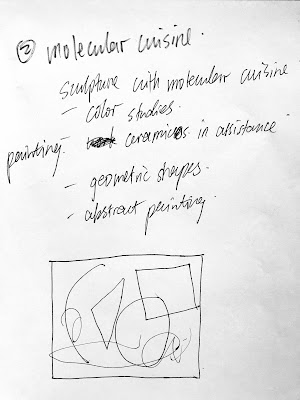 ② molecular cuisine.
sculpture with molecular cuisine
- color studies.
painting - ceramics in assistance
- geometric shapes.
- abstract painting.